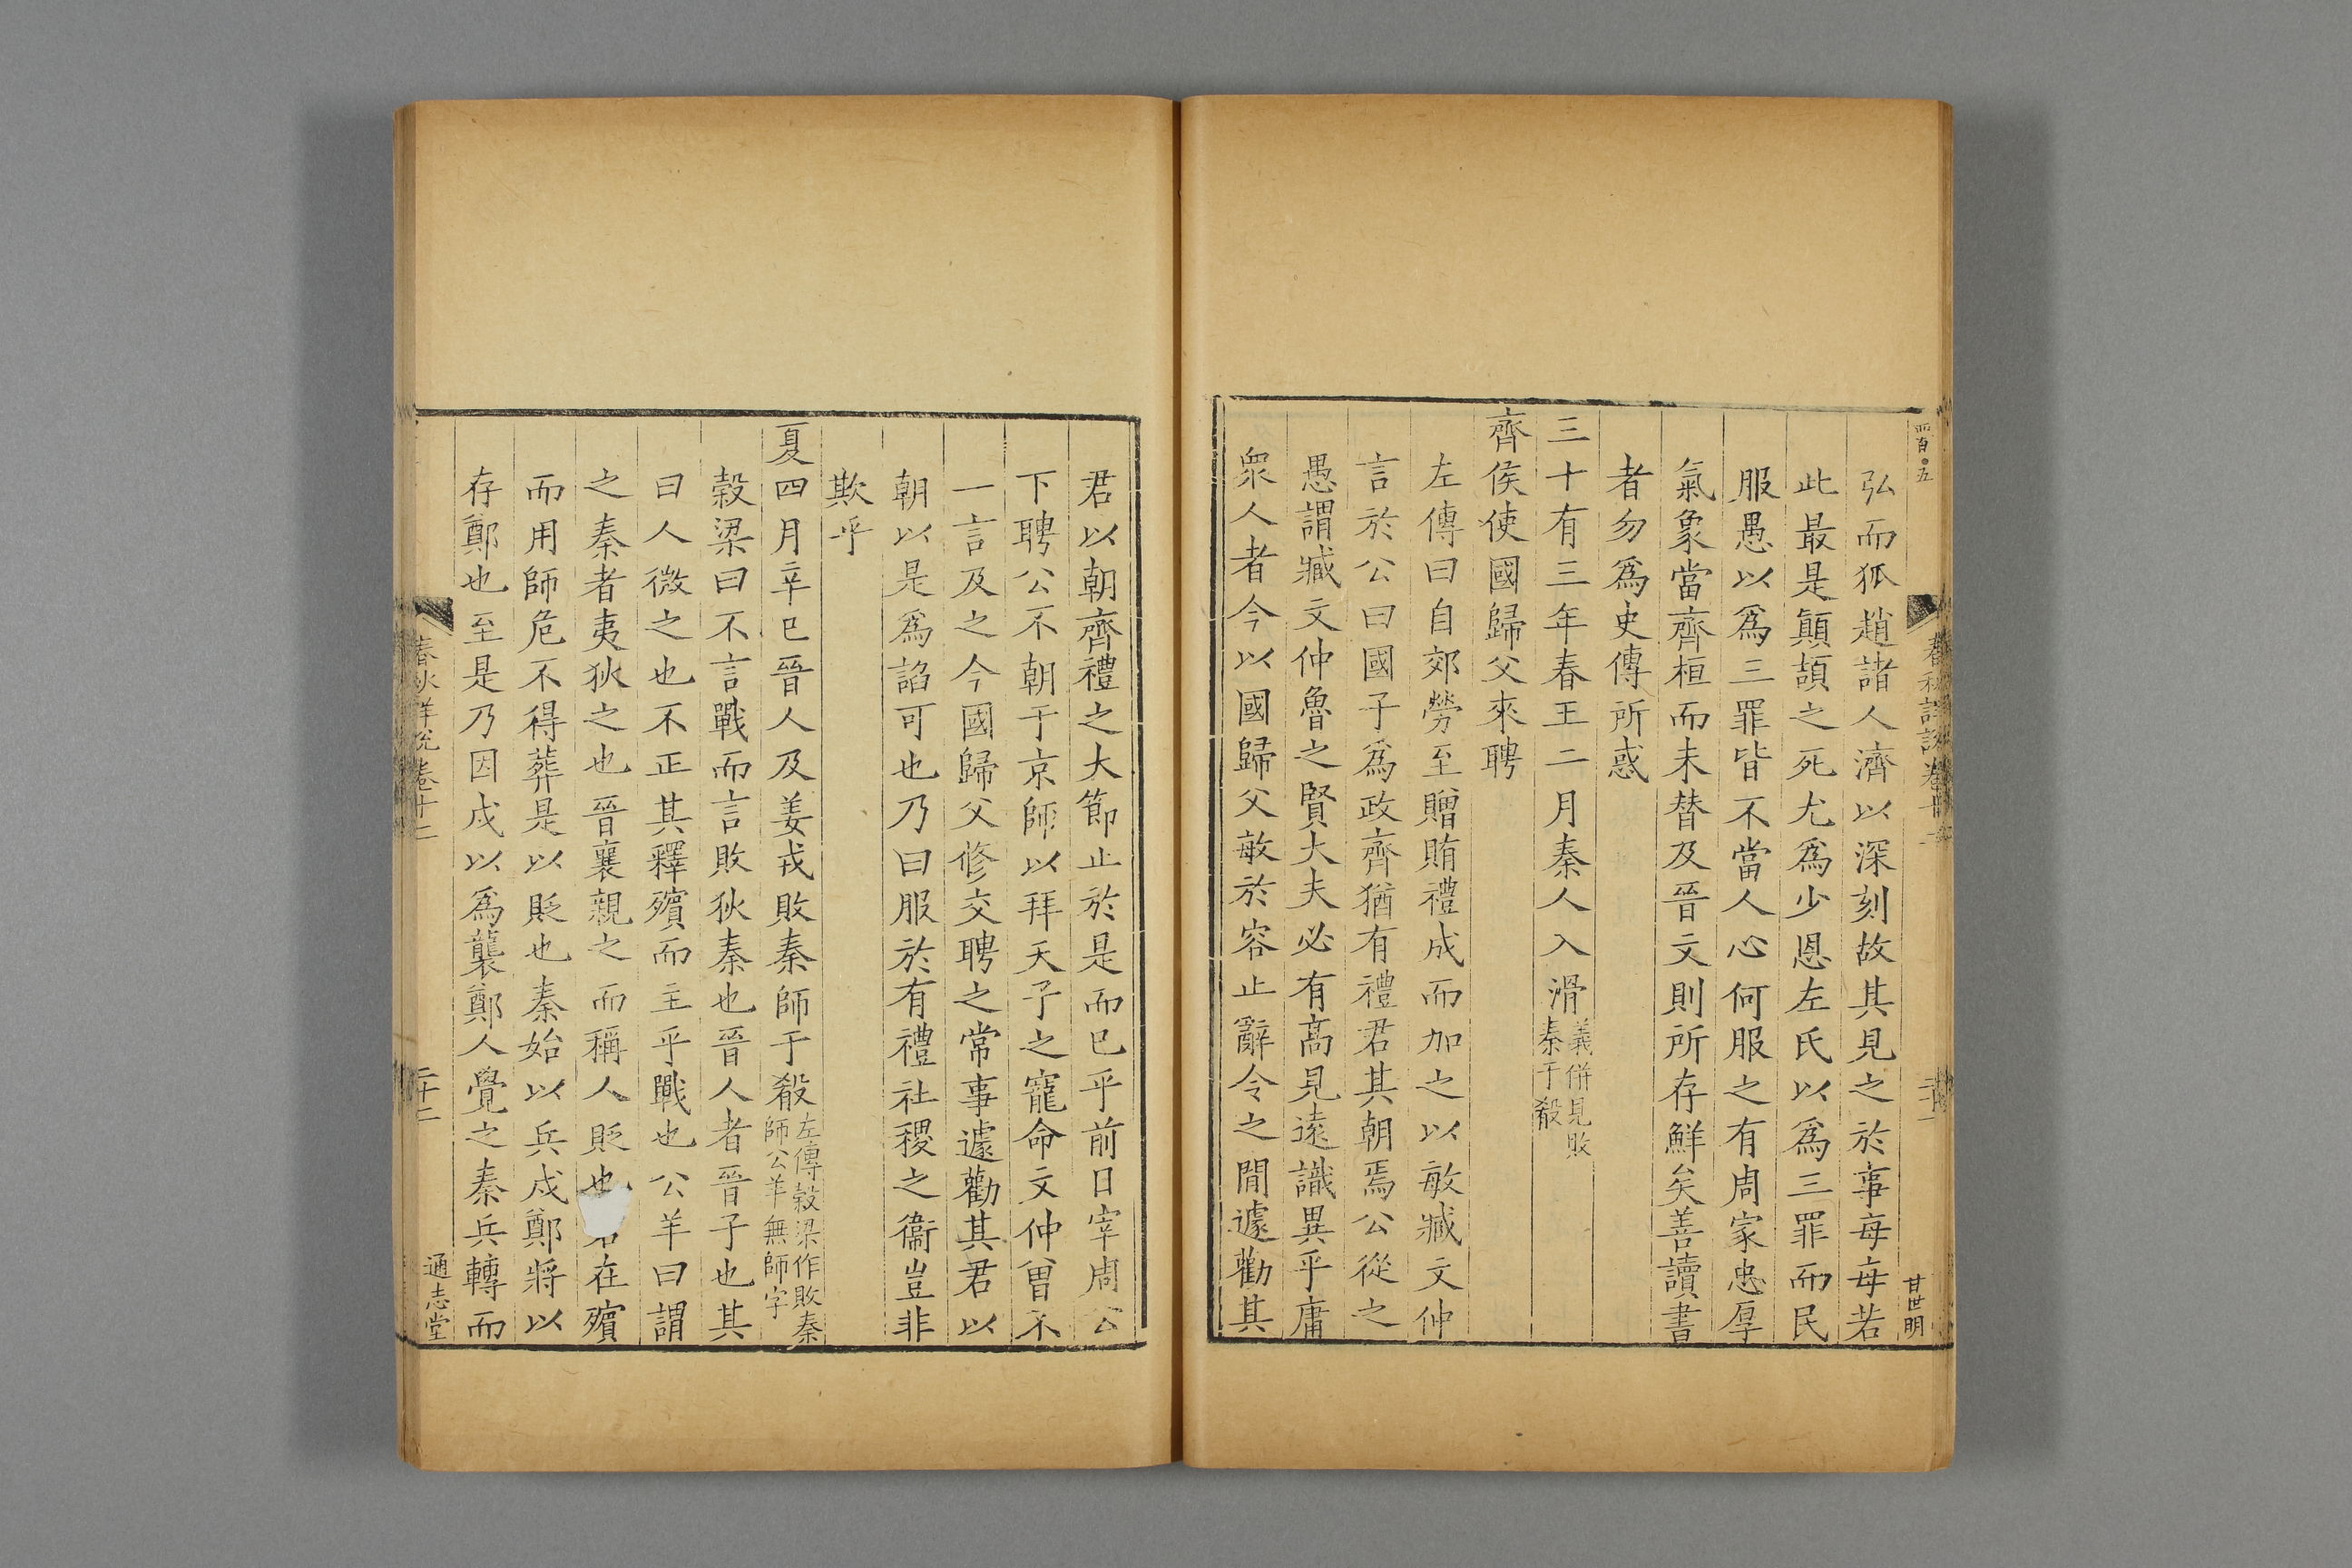 弘而狐趙諸人濟以深刻故其見之於事每每若
此最是顛頡之死尤爲少恩左氏以爲三罪而民
服愚以爲三罪皆不當人心何服之有周家忠厚
氣象當齊桓而未替及晉文則所存鮮矣善讀書
者勿爲史傳所惑
三十有三年春王二月秦人入滑義併見敗秦于殽
齊侯使國歸父來聘
左傳曰自郊勞至贈賄禮成而加之以敏臧文仲
言於公曰國子爲政齊猶有禮君其朝焉公從之
愚謂臧文仲魯之賢大夫必有高見遠識異乎庸
衆人者今以國歸父敏於容止辭令之間遽勸其
甘世明
君以朝齊禮之大節止於是而已乎前日宰周公
下聘公不朝于京師以拜天子之寵命文仲曾不
一言及之今國歸父修交聘之常事遽勸其君以
朝以是爲諂可也乃曰服於有禮社稷之衞豈非
欺乎
夏四月辛巳晉人及姜戎敗秦師于殽左傳穀梁作敗秦師公羊無師字
穀梁曰不言戰而言敗狄秦也晉人者晉子也其
曰人微之也不正其釋殯而主乎戰也公羊曰謂
之秦者夷狄之也晉襄親之而稱人貶也在殯
而用師危不得葬是以貶也秦始以兵戍鄭將以
存鄭也至是乃因戍以爲襲鄭人覺之秦兵轉而
春秋詳說卷十二
二十二
通志堂